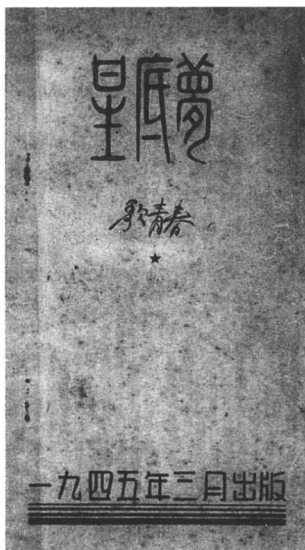 星底夢
歌青春
一九四五年三月出版